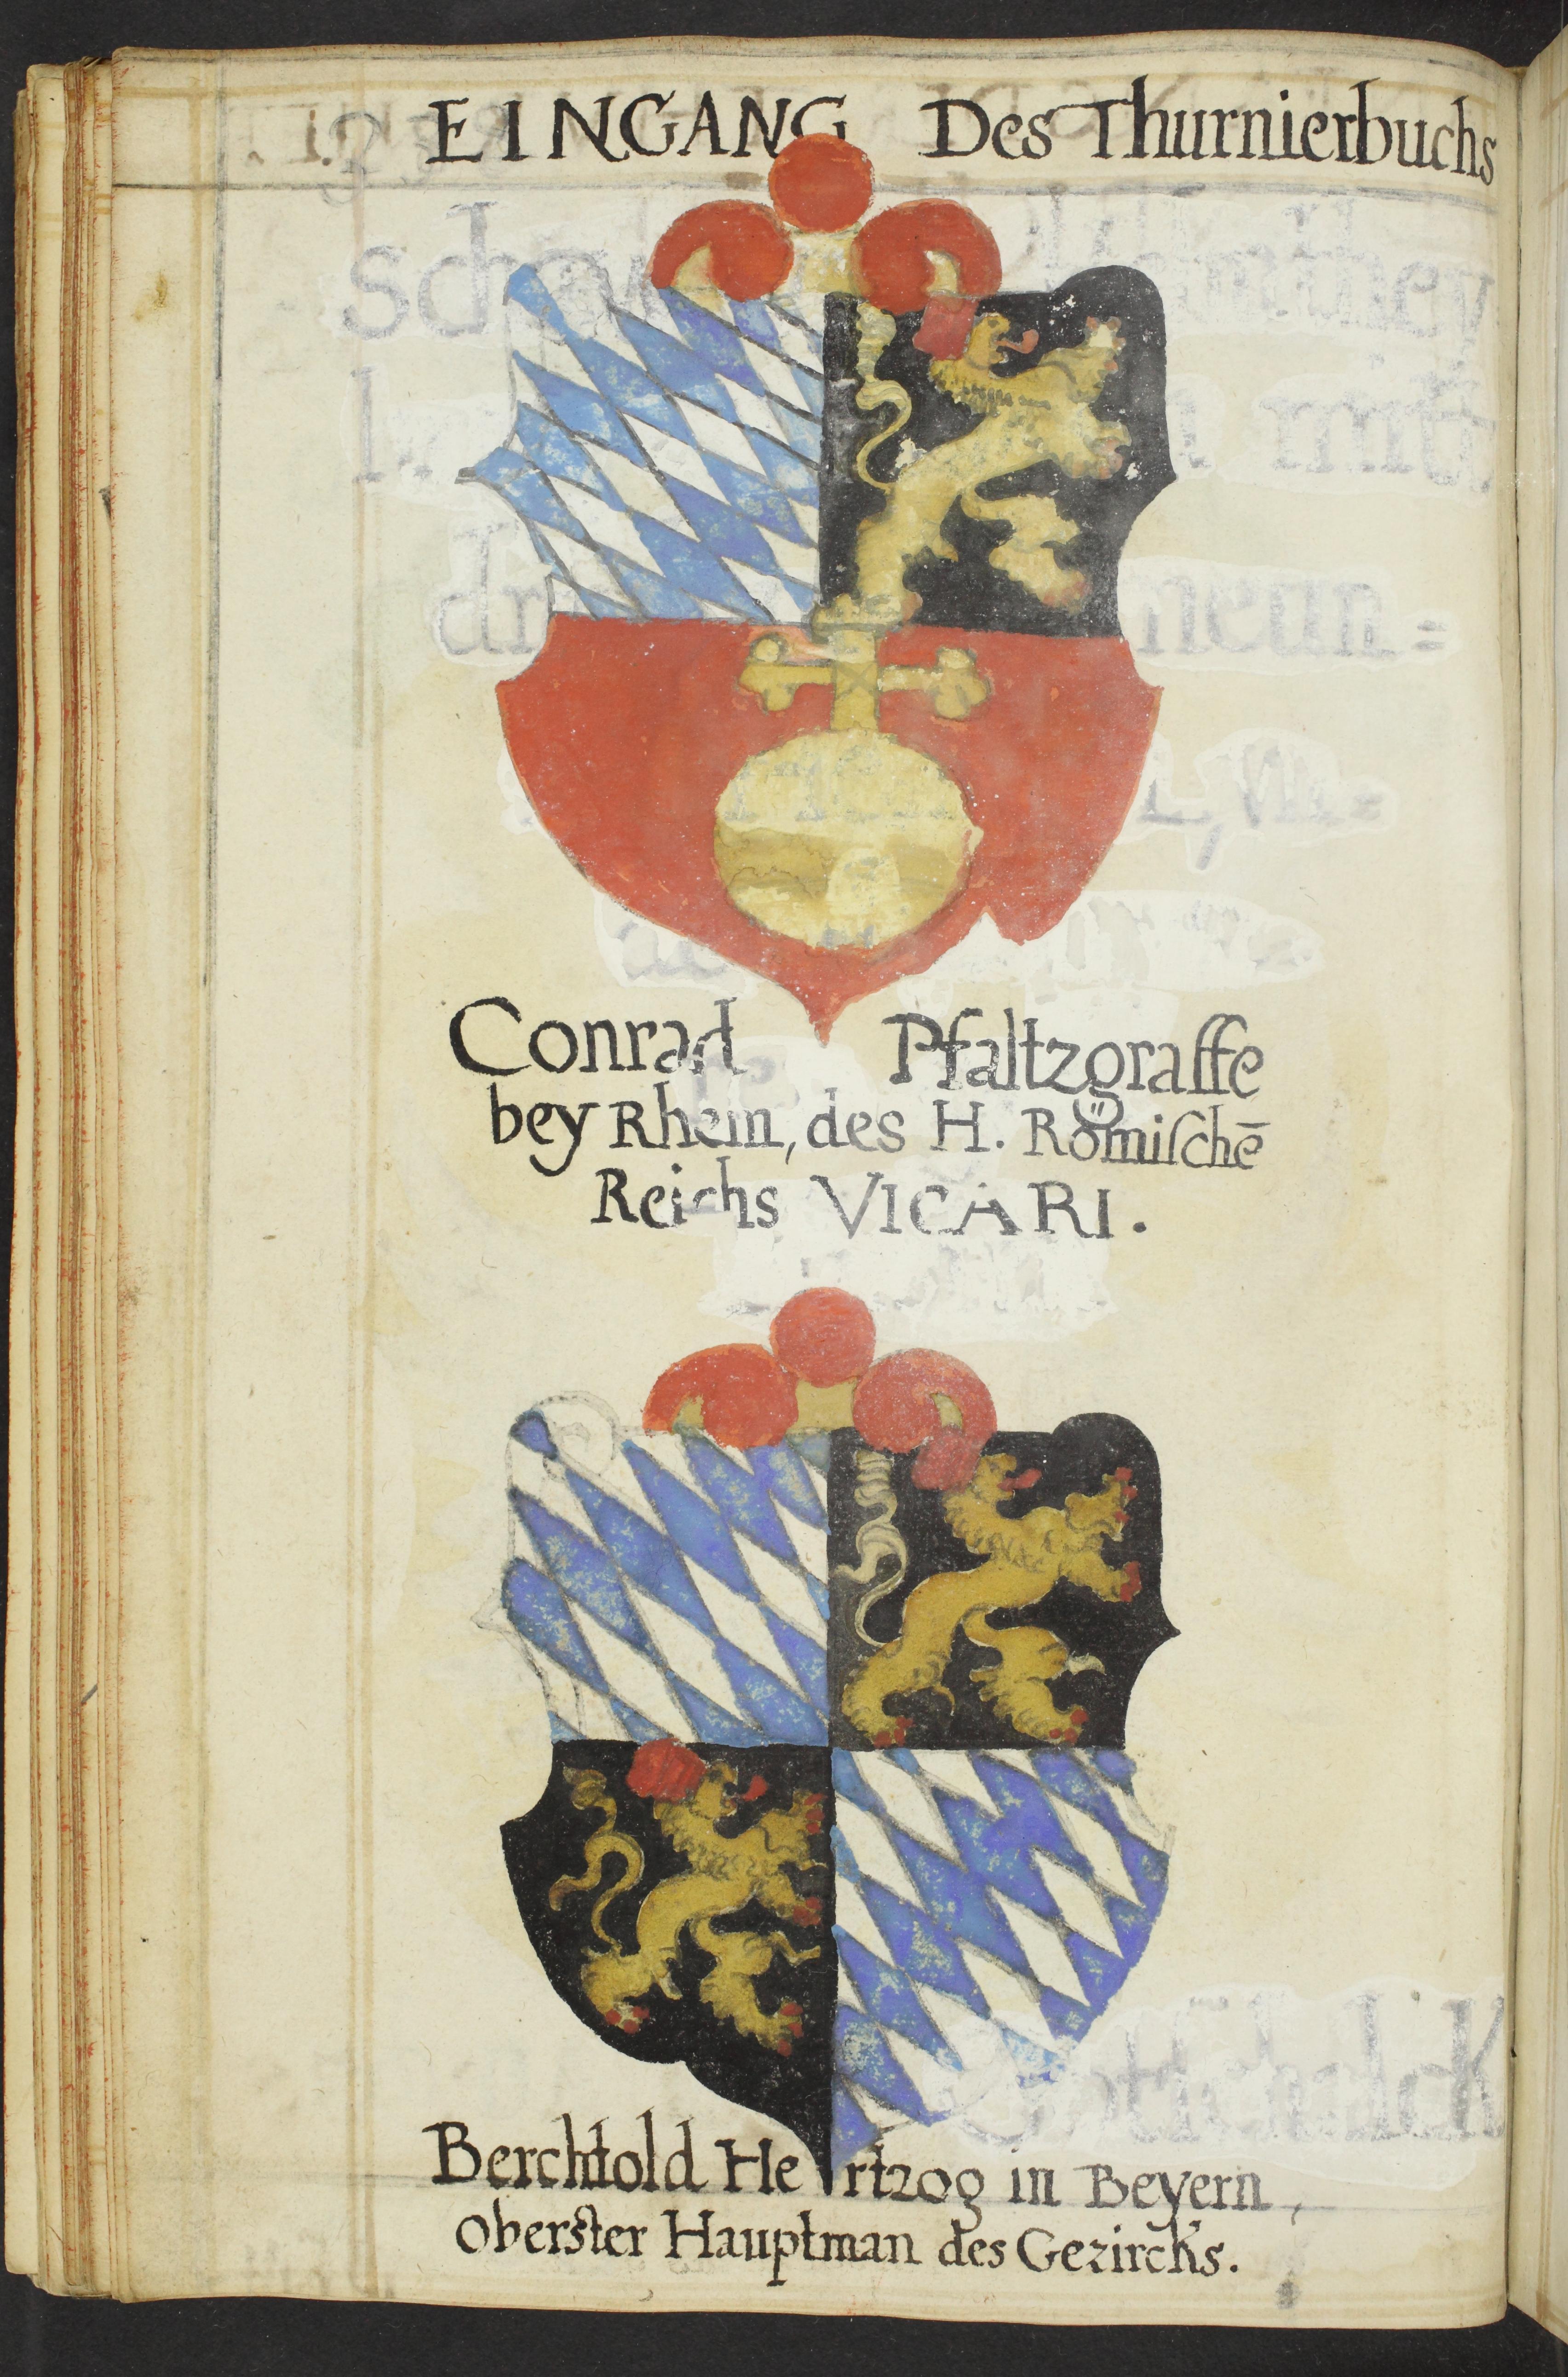 EINGANG Des Thurnierbuchs
Conrad Pfaltzgraffe
bey Rhein, des H. Römiſchē
Reichs VICARI.
Berchtold Hertzog in Beyern,
Oberster Hauptman des Gezircks.